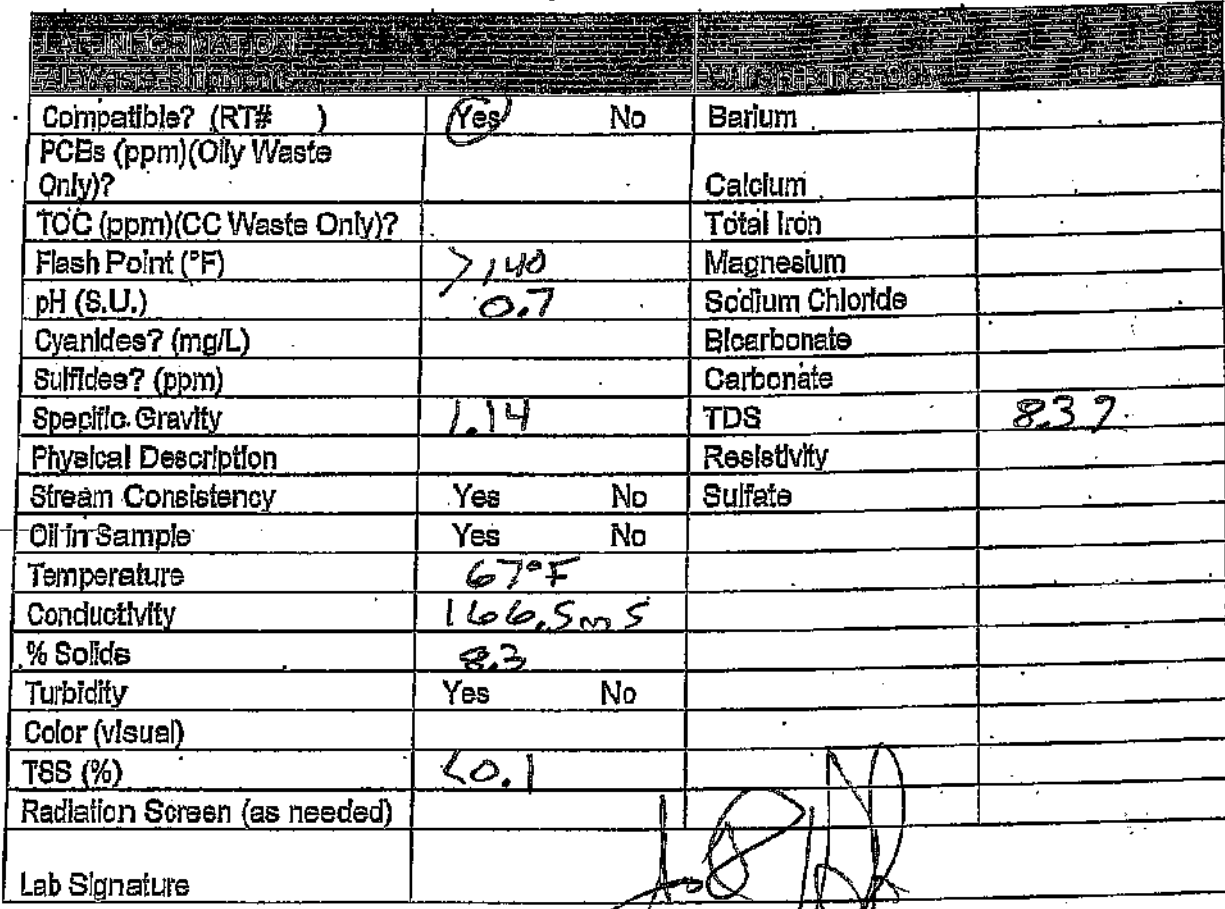 LAB INFORMATION
All Waste Shipments
Compatible? (RT# ) Yes No Barium
PCBs (ppm)(Oily Waste
Only)? Calcium
TOC (ppm)(CC Waste Only)? Total Iron
Flash Point (°F) >140 Magnesium
pH (S.U.) 0.7 Sodium Chloride
Cyanides? (mg/L) Bicarbonate
Sulfides? (ppm) Carbonate
Specific Gravity 1.14 TDS
Physical Description Resistivity
Stream Consistency Yes No Sulfate
Oil in Sample Yes No
Temperature 67°F
Conductivity 166.5 mS
% Solids 8.3
Turbidity Yes No
Color (visual)
TSS (%) <0.1
Radiation Screen (as needed)
Lab Signature